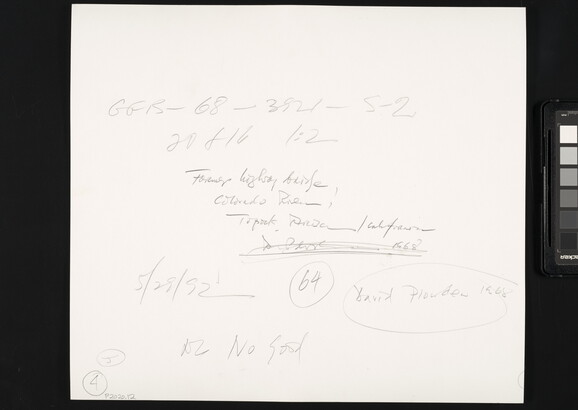 GEB - 68 - 3921 - S-2
20 & 16 1:2
Former highway bridge,
Colorado River,
Topock, Arizona / California
1968
5/29/92
64
David Plowden 1968
No Good
4